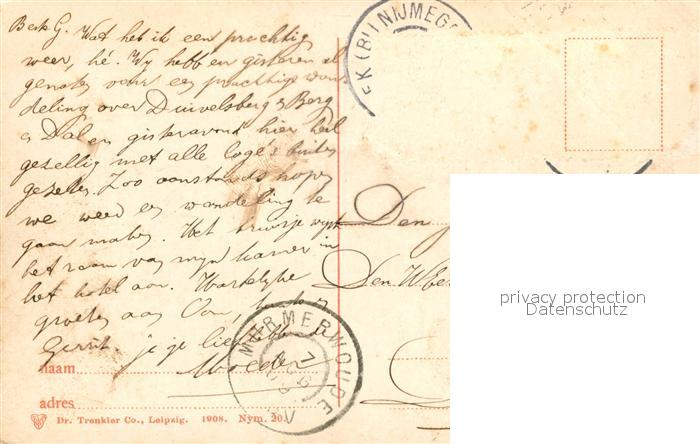 Berk G. Wat heb ik een prachtig
weer, hé. Wy hebben gisteren al
genoten voor een prachtige wan
deling over Duivelsberg Berg
en Dal en gisteravond hier heel
gezellig met alle logé's buiten
gezeten. Zoo aanstonds hopen
we weer een wandeling te
gaan maken. Het kruisje wyst
het raam van myn kamer in
het hotel aan. Hartelyke
groeten aan Oom,
Gerrit. je je liefh.
Moeder
naam
adres
Dr. Trenkler Co., Leipzig. 1908. Nym. 20.
K (B/ NIJMEG
MURMERWOUDE
Den
Den
privacy protection
Datenschutz